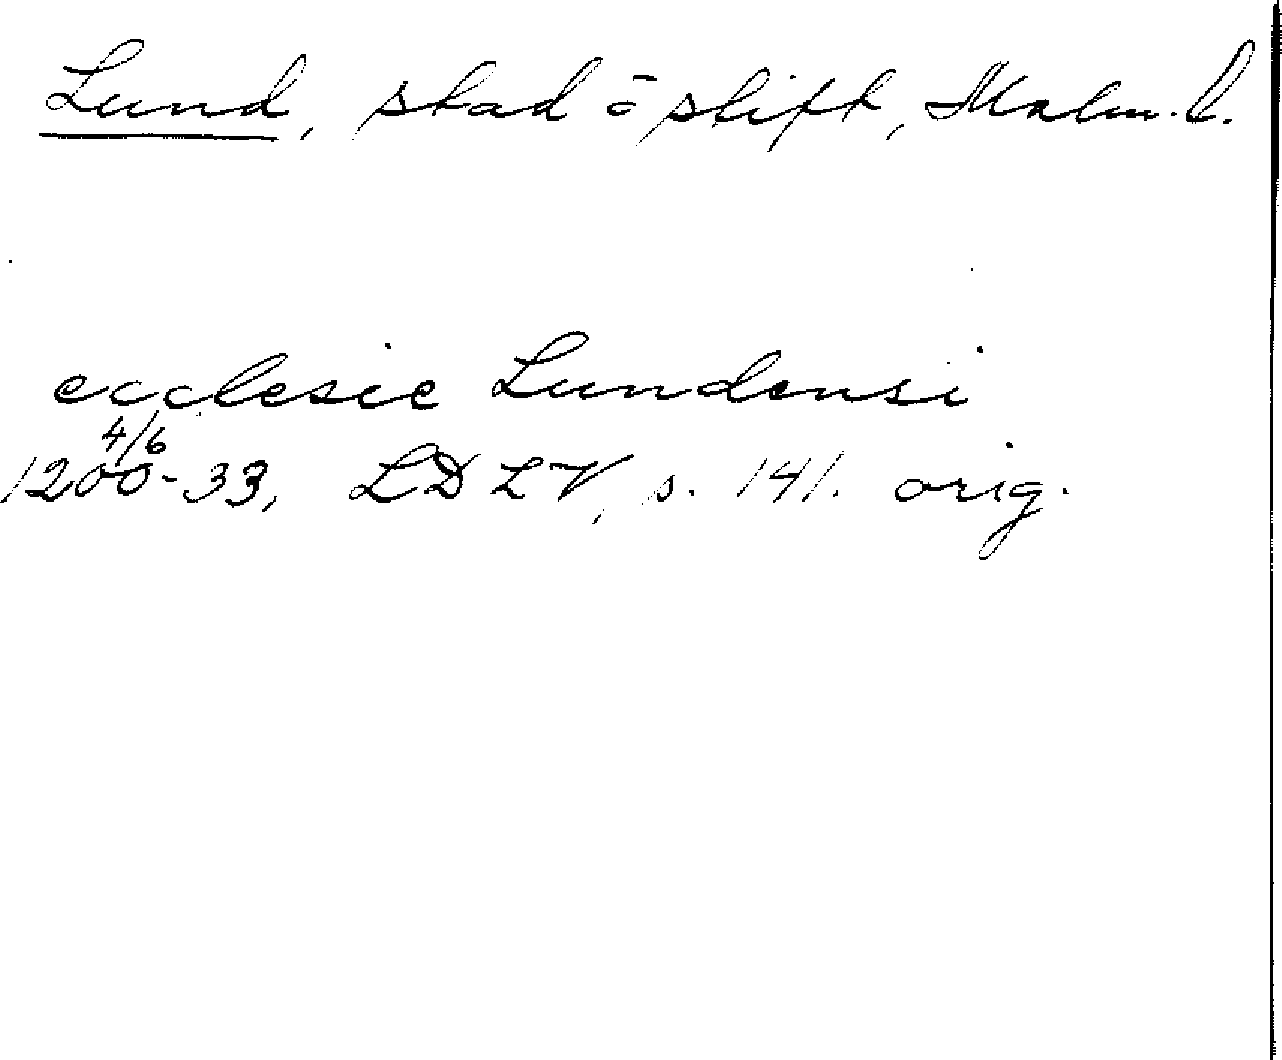 Lund, stad ō stift, Malm. l.
ecclesie Lundensi
4/6
1200-33, LDLV, s. 141. orig.